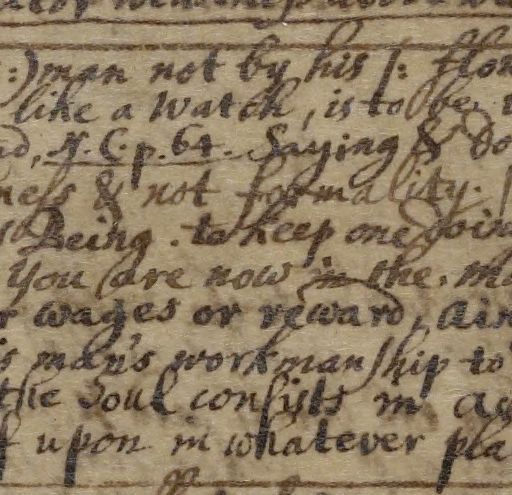 :) man not by his |: flow
like a watch, is to be
N. C. p. 64. Saying & do
ness & not formality.
Being. to keep one doin
you are now in the. ma
wages or reward, Ain
is man's workmanship to
the Soul consists in ac
upon in whatever pla